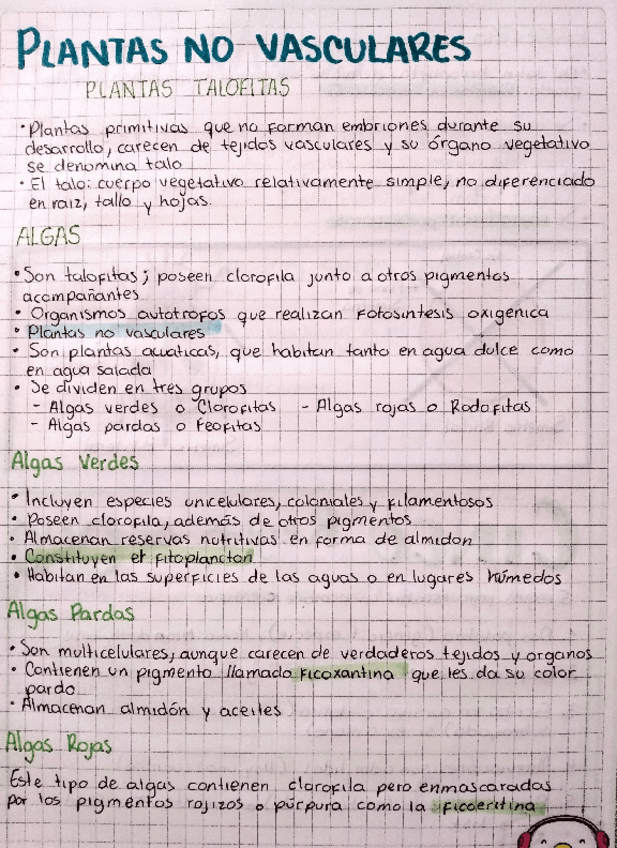 PLANTAS NO VASCULARES
PLANTAS TALOFITAS
• Plantas primitivas que no forman embriones durante su
desarrollo, carecen de tejidos vasculares y su órgano vegetativo
se denomina talo
• El talo: cuerpo vegetativo relativamente simple, no diferenciado
en raiz, tallo y hojas.
ALGAS
• Son talofitas; poseen clorofila junto a otros pigmentos
acompañantes
• Organismos autotrofos que realizan fotosintesis oxigenica
• Plantas no vasculares
• Son plantas acuaticas, que habitan tanto en agua dulce como
en agua salada
• Se dividen en tres grupos
- Algas verdes o Clorofitas - Algas rojas o Rodofitas
- Algas pardas o Feofitas
Algas Verdes
• Incluyen especies unicelulares, coloniales y filamentosos
• Poseen clorofila, además de otros pigmentos
• Almacenan reservas nutritivas en forma de almidon
• Constituyen el fitoplancton
• Habitan en las superficies de las aguas o en lugares húmedos
Algas Pardas
• Son multicelulares, aunque carecen de verdaderos tejidos y organos
• Contienen un pigmento llamado ficoxantina que les da su color
pardo
• Almacenan almidón y aceites
Algas Rojas
Este tipo de algas contienen clorofila pero enmascaradas
por los pigmentos rojizos o púrpura como la ficoeritina